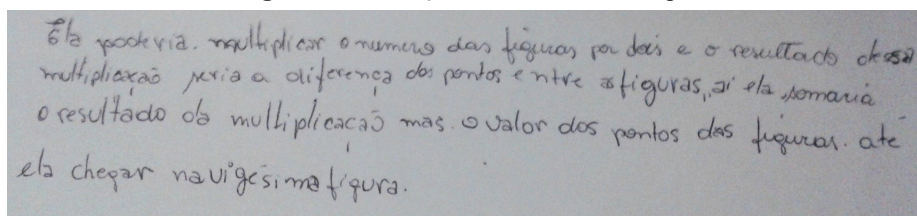 Ela poderia. multiplicar o numero das figuras por dois e o resultado dessa
multiplicação seria a diferença dos pontos entre as figuras, ai ela somaria
o resultado da multiplicação mas. o valor dos pontos das figuras. ate
ela chegar na vigésima figura.